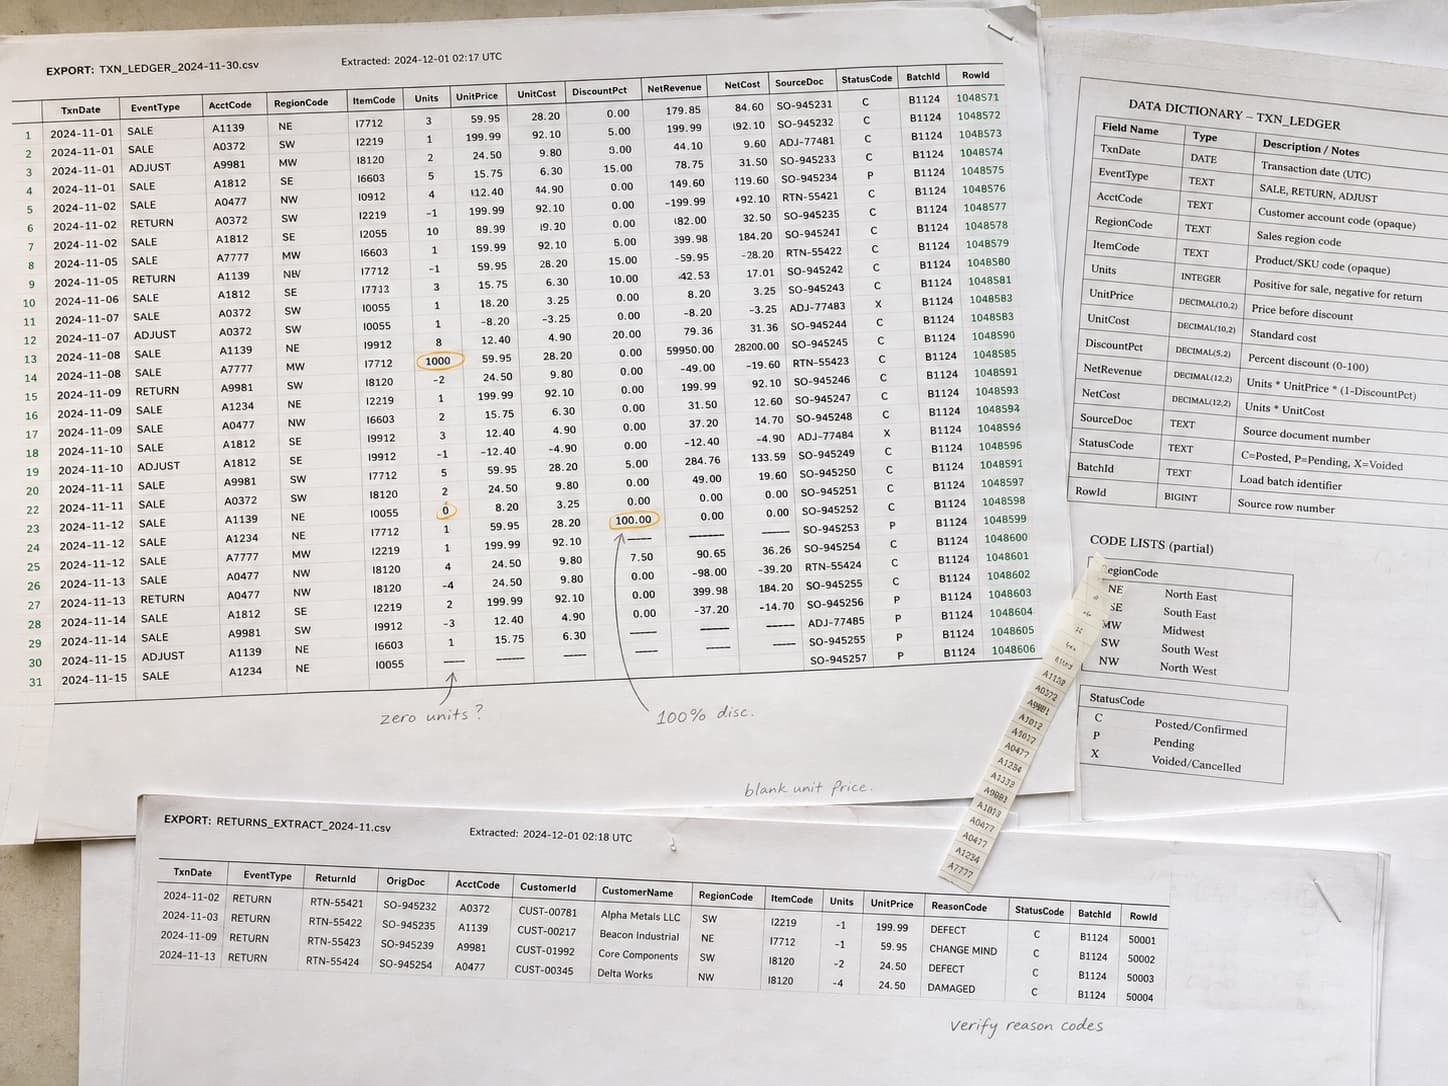 EXPORT: TXN_LEDGER_2024-11-30.csv
Extracted: 2024-12-01 02:17 UTC
TxnDate EventType AcctCode RegionCode ItemCode Units UnitPrice UnitCost DiscountPct NetRevenue NetCost SourceDoc StatusCode BatchId RowId
1 2024-11-01 SALE A1139 NE I7712 3 59.95 28.20 0.00 179.85 84.60 SO-945231 C B1124 1048571
2 2024-11-01 SALE A0372 SW I2219 1 199.99 92.10 5.00 199.99 192.10 SO-945232 C B1124 1048572
3 2024-11-01 ADJUST A9981 MW I8120 2 24.50 9.80 0.00 44.10 9.60 ADJ-77481 C B1124 1048573
4 2024-11-01 SALE A1812 SE I6603 5 15.75 6.30 15.00 78.75 31.50 SO-945233 C B1124 1048574
5 2024-11-02 SALE A0477 NW I0912 4 112.40 44.90 0.00 149.60 119.60 SO-945234 P B1124 1048575
6 2024-11-02 RETURN A0372 SW I2219 -1 199.99 92.10 0.00 -199.99 492.10 RTN-55421 C B1124 1048576
7 2024-11-02 SALE A1812 SE I2055 10 89.99 19.20 0.00 182.00 32.50 SO-945235 C B1124 1048577
8 2024-11-05 SALE A7777 MW I6603 1 159.99 92.10 5.00 399.98 184.20 SO-945241 C B1124 1048578
9 2024-11-05 RETURN A1139 NW I7712 -1 59.95 28.20 15.00 -59.95 -28.20 RTN-55422 C B1124 1048579
10 2024-11-06 SALE A1812 SE I7713 3 15.75 6.30 10.00 -42.53 17.01 SO-945242 C B1124 1048580
11 2024-11-07 SALE A0372 SW I0055 1 18.20 3.25 0.00 8.20 3.25 SO-945243 C B1124 1048581
12 2024-11-07 ADJUST A0372 SW I0055 1 -8.20 -3.25 0.00 -8.20 -3.25 ADJ-77483 X B1124 1048583
13 2024-11-08 SALE A1139 NE I9912 8 12.40 4.90 20.00 79.36 31.36 SO-945244 C B1124 1048583
14 2024-11-08 SALE A7777 MW I7712 1000 59.95 28.20 0.00 59950.00 28200.00 SO-945245 C B1124 1048590
15 2024-11-09 RETURN A9981 SW I8120 -2 24.50 9.80 0.00 -49.00 -19.60 RTN-55423 C B1124 1048585
16 2024-11-09 SALE A1234 NE I2219 1 199.99 92.10 0.00 199.99 92.10 SO-945246 C B1124 1048591
17 2024-11-09 SALE A0477 NW I6603 2 15.75 6.30 0.00 31.50 12.60 SO-945247 C B1124 1048593
18 2024-11-10 SALE A1812 SE I9912 3 12.40 4.90 0.00 37.20 14.70 SO-945248 C B1124 1048594
19 2024-11-10 ADJUST A1812 SE I9912 -1 -12.40 -4.90 0.00 -12.40 -4.90 ADJ-77484 X B1124 1048596
20 2024-11-11 SALE A9981 SW I7712 5 59.95 28.20 5.00 284.76 133.59 SO-945249 C B1124 1048596
21 2024-11-11 SALE A0372 SW I8120 2 24.50 9.80 0.00 49.00 19.60 SO-945250 C B1124 1048591
22 2024-11-12 SALE A1139 NE I0055 0 8.20 3.25 0.00 0.00 0.00 SO-945251 C B1124 1048597
23 2024-11-12 SALE A1234 NE I7712 1 59.95 28.20 100.00 0.00 0.00 SO-945252 C B1124 1048598
24 2024-11-12 SALE A7777 MW I2219 1 199.99 92.10 —— —— —— SO-945253 P B1124 1048599
25 2024-11-13 SALE A0477 NW I8120 4 24.50 9.80 7.50 90.65 36.26 SO-945254 C B1124 1048600
26 2024-11-13 RETURN A0477 NW I8120 -4 24.50 9.80 0.00 -98.00 -39.20 RTN-55424 C B1124 1048601
27 2024-11-14 SALE A1812 SE I2219 2 199.99 92.10 0.00 399.98 184.20 SO-945255 C B1124 1048602
28 2024-11-14 SALE A9981 SW I9912 -3 12.40 4.90 0.00 -37.20 -14.70 SO-945256 P B1124 1048603
29 2024-11-15 ADJUST A1139 NE I6603 1 15.75 6.30 —— —— —— ADJ-77485 P B1124 1048604
30 2024-11-15 SALE A1234 NE I0055 —— —— —— —— —— —— SO-945255 P B1124 1048605
31 SO-945257 P B1124 1048606
zero units?
100% disc.
blank unit price.
DATA DICTIONARY – TXN_LEDGER
Field Name Type Description / Notes
TxnDate DATE Transaction date (UTC)
EventType TEXT SALE, RETURN, ADJUST
AcctCode TEXT Customer account code (opaque)
RegionCode TEXT Sales region code
ItemCode TEXT Product/SKU code (opaque)
Units INTEGER Positive for sale, negative for return
UnitPrice DECIMAL(10,2) Price before discount
UnitCost DECIMAL(10,2) Standard cost
DiscountPct DECIMAL(5,2) Percent discount (0-100)
NetRevenue DECIMAL(12,2) Units * UnitPrice * (1-DiscountPct)
NetCost DECIMAL(12,2) Units * UnitCost
SourceDoc TEXT Source document number
StatusCode TEXT C=Posted, P=Pending, X=Voided
BatchId TEXT Load batch identifier
RowId BIGINT Source row number
CODE LISTS (partial)
egionCode
NE North East
SE South East
MW Midwest
SW South West
NW North West
StatusCode
C Posted/Confirmed
P Pending
X Voided/Cancelled
A0372
A9981
A1012
A0477
A1234
A9981
A0477
A0477
A1234
A7777
EXPORT: RETURNS_EXTRACT_2024-11.csv
Extracted: 2024-12-01 02:18 UTC
TxnDate EventType ReturnId OrigDoc AcctCode CustomerId CustomerName RegionCode ItemCode Units UnitPrice ReasonCode StatusCode BatchId RowId
2024-11-02 RETURN RTN-55421 SO-945232 A0372 CUST-00781 Alpha Metals LLC SW I2219 -1 199.99 DEFECT C B1124 50001
2024-11-03 RETURN RTN-55422 SO-945235 A1139 CUST-00217 Beacon Industrial NE I7712 -1 59.95 CHANGE MIND C B1124 50002
2024-11-09 RETURN RTN-55423 SO-945239 A9981 CUST-01992 Core Components SW I8120 -2 24.50 DEFECT C B1124 50003
2024-11-13 RETURN RTN-55424 SO-945254 A0477 CUST-00345 Delta Works NW I8120 -4 24.50 DAMAGED C B1124 50004
verify reason codes